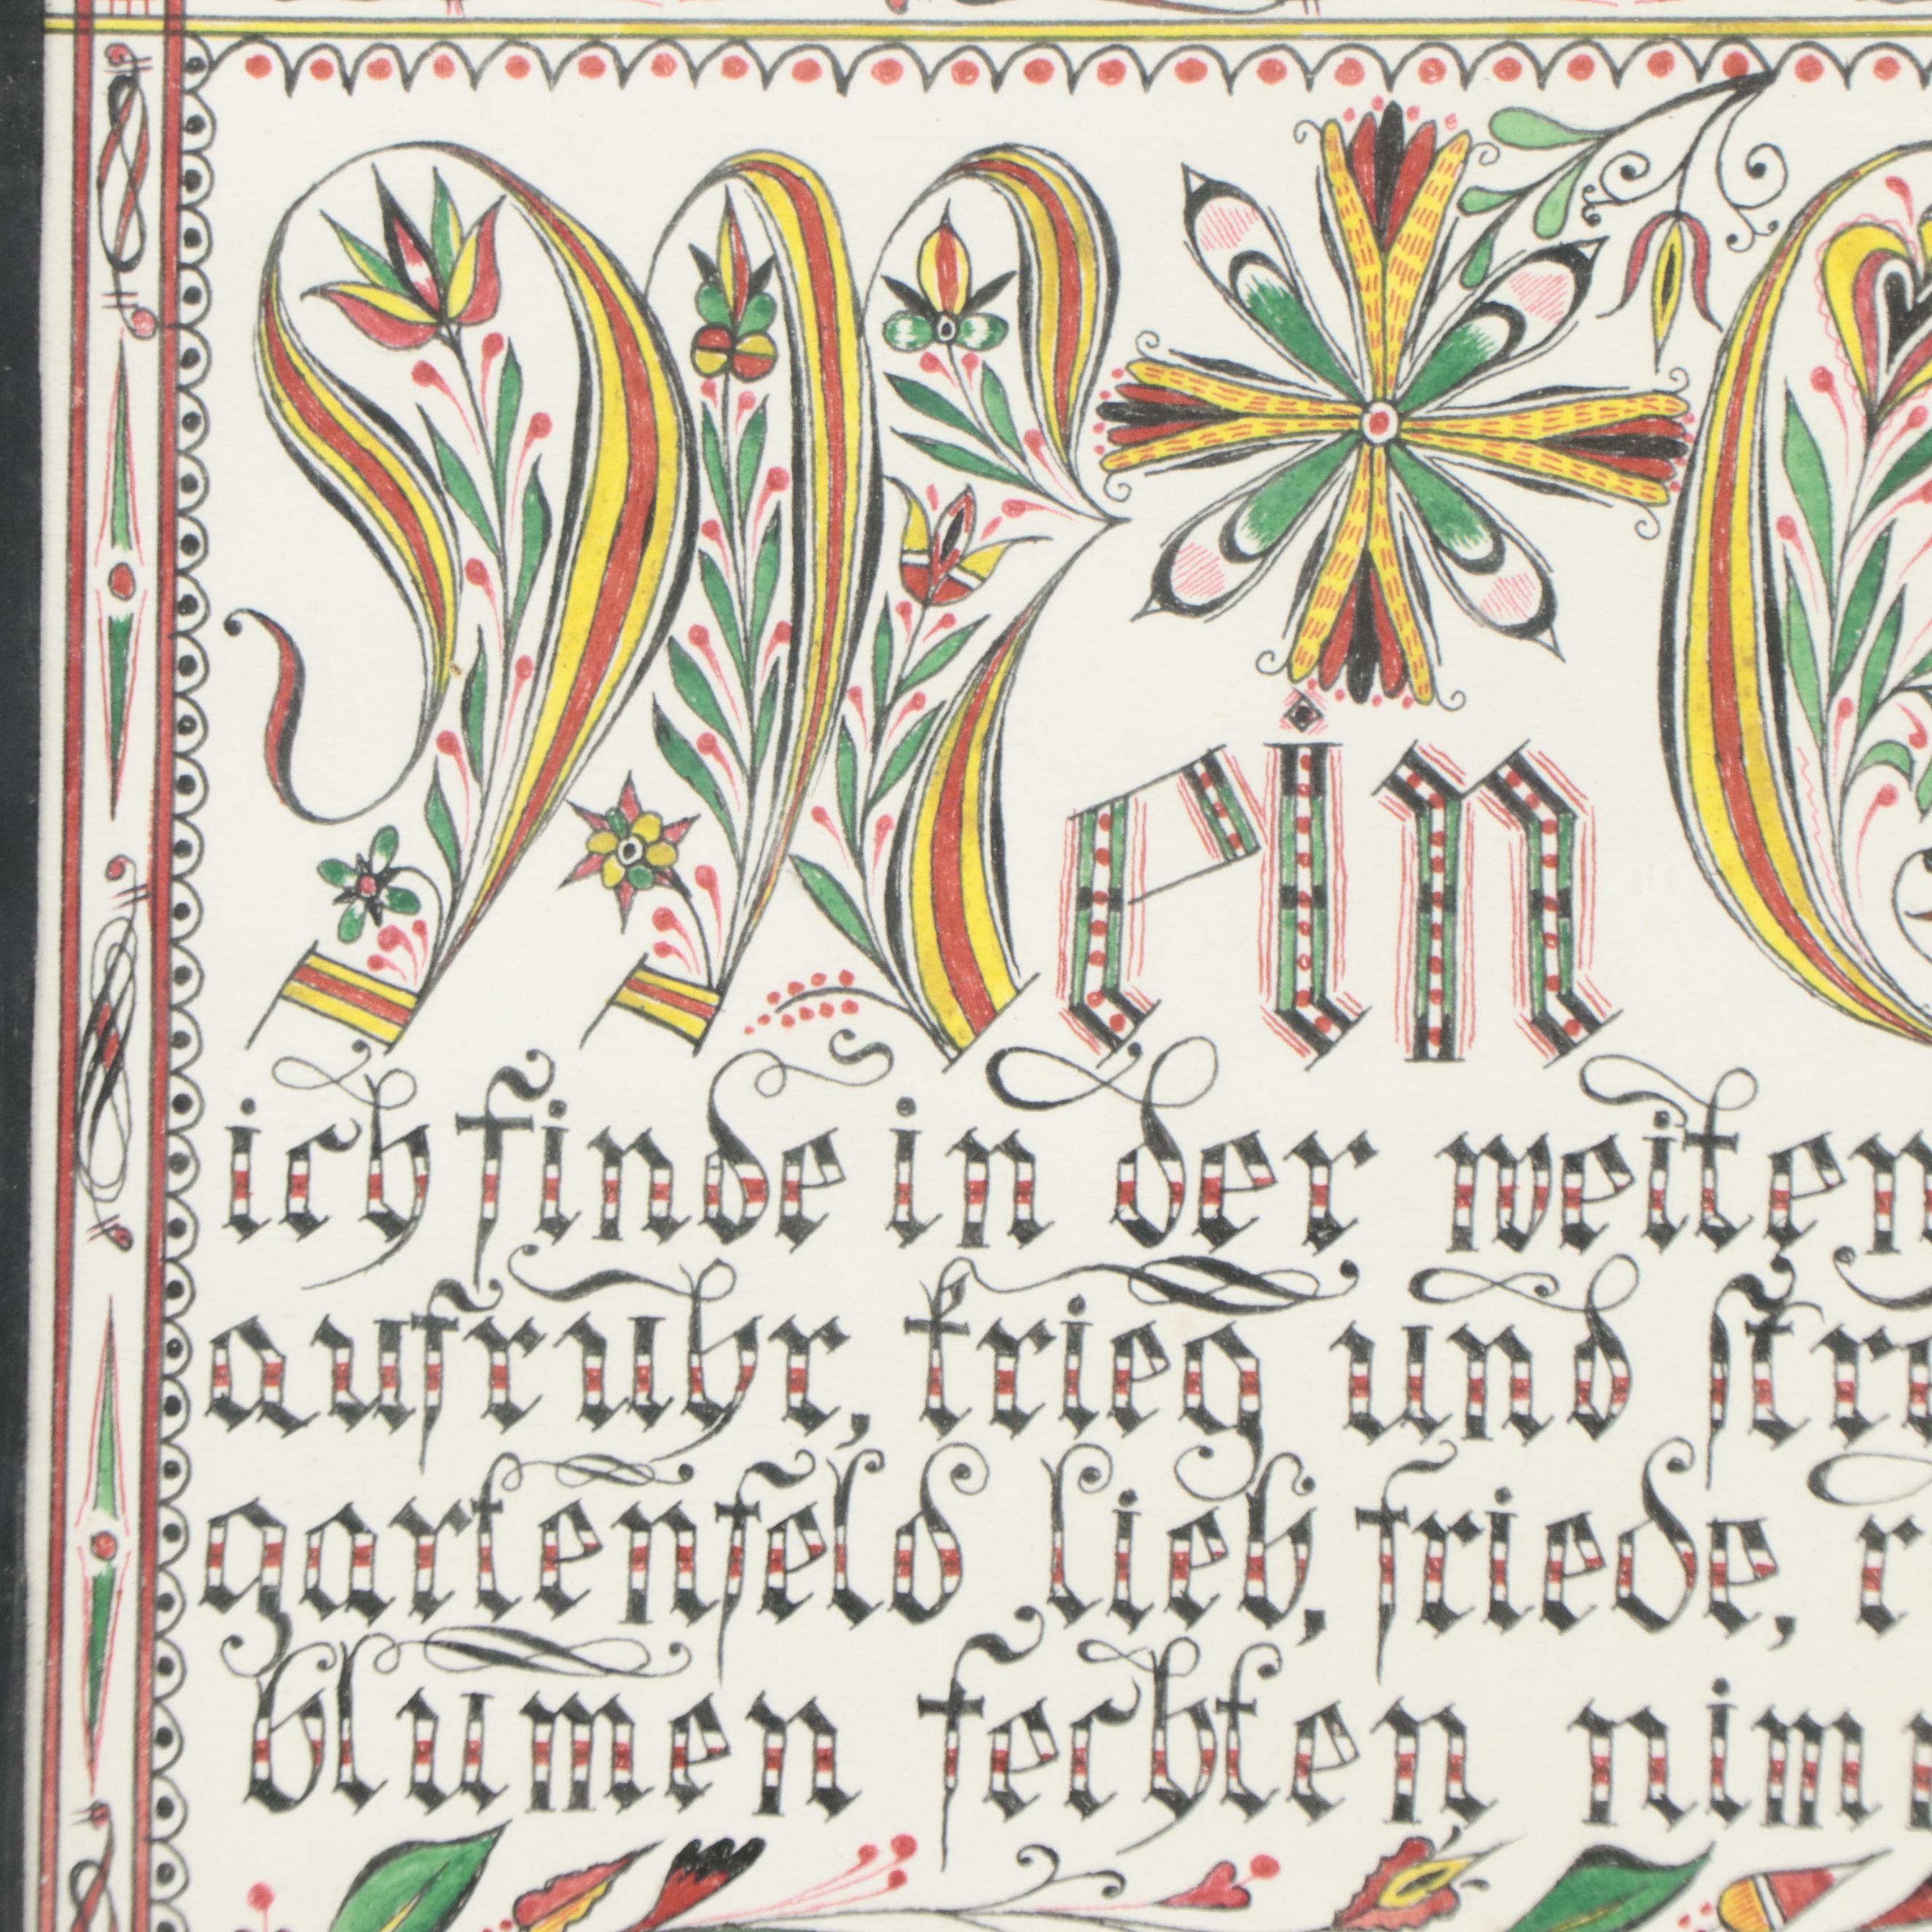 Mein
ich finde in der weiten
aufruhr, krieg und
gartenfeld lieb, friede,
blumen fechten